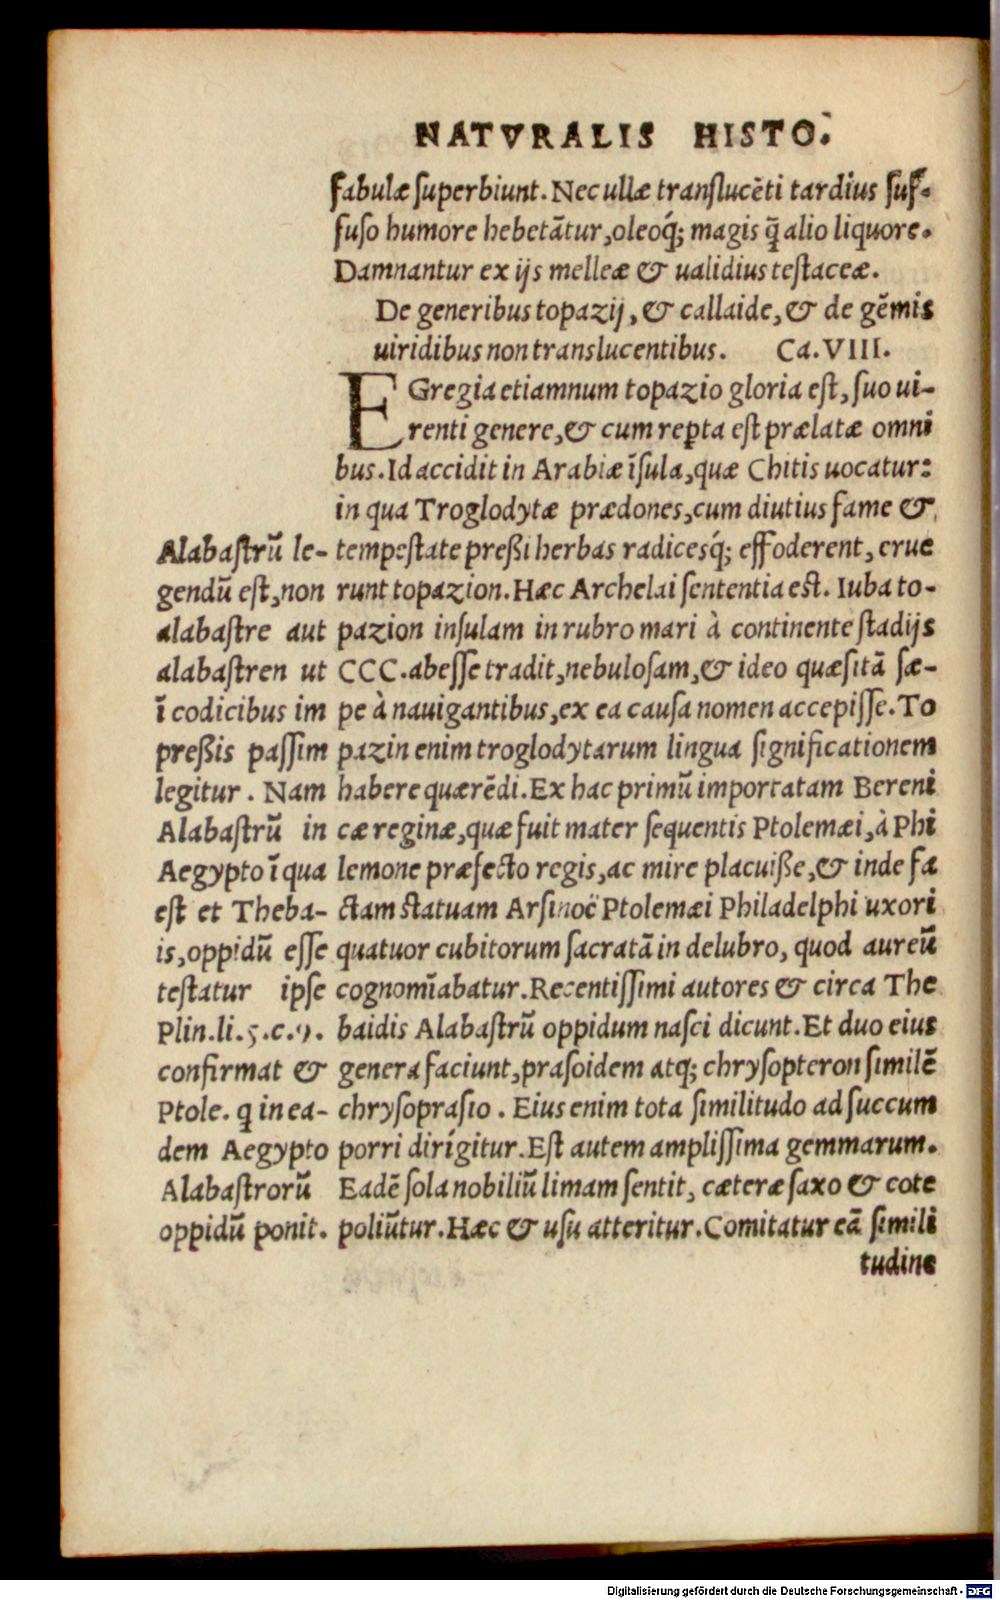 NATVRALIS HISTO.
fabulæ superbiunt. Nec ullæ translucẽti tardius suf-
fuso humore hebetãtur, oleoq́; magis q̃ alio liquore.
Damnantur ex ijs melleæ & ualidius testaceæ.
De generibus topazij, & callaide, & de gẽmis
uiridibus non translucentibus. Ca. VIII.
EGregia etiamnum topazio gloria est, suo ui-
renti genere, & cum reꝑta est prælatæ omni
bus. Id accidit in Arabiæ ĩsula, quæ Chitis uocatur:
in qua Troglodytæ prædones, cum diutius fame &
tempestate preßi herbas radicesq́; effoderent, erue
runt topazion. Hæc Archelai sententia est. Iuba to-
pazion insulam in rubro mari à continente stadijs
CCC. abesse tradit, nebulosam, & ideo quæsitã sæ-
pe à nauigantibus, ex ea causa nomen accepisse. To
pazin enim troglodytarum lingua significationem
habere quærẽdi. Ex hac primũ importatam Bereni
cæ reginæ, quæ fuit mater sequentis Ptolemæi, à Phi
lemone præfecto regis, ac mire placuiße, & inde fa
ctam statuam Arsinoë Ptolemæi Philadelphi uxori
quatuor cubitorum sacratã in delubro, quod aureũ
cognomĩabatur. Recentissimi autores & circa The
baidis Alabastrũ oppidum nasci dicunt. Et duo eius
genera faciunt, prasoidem atq; chrysopteron similẽ
chrysoprasio. Eius enim tota similitudo ad succum
porri dirígitur. Est autem amplissima gemmarum.
Eadẽ sola nobiliũ limam sentit, cæteræ saxo & cote
poliũtur. Hæc & usu atteritur. Comitatur eã simili
tudine
Alabastrũ le-
gendũ est, non
alabastre aut
alabastren ut
ĩ codicibus im
preßis passim
legitur. Nam
Alabastrũ in
Aegypto ĩ qua
est et Theba-
is, oppidũ esse
testatur ipse
Plin. li. 5. c. 9.
confirmat &
Ptole. q in ea-
dem Aegypto
Alabastrorũ
oppidũ ponit.
Digitalisierung gefördert durch die Deutsche Forschungsgemeinschaft - DFG